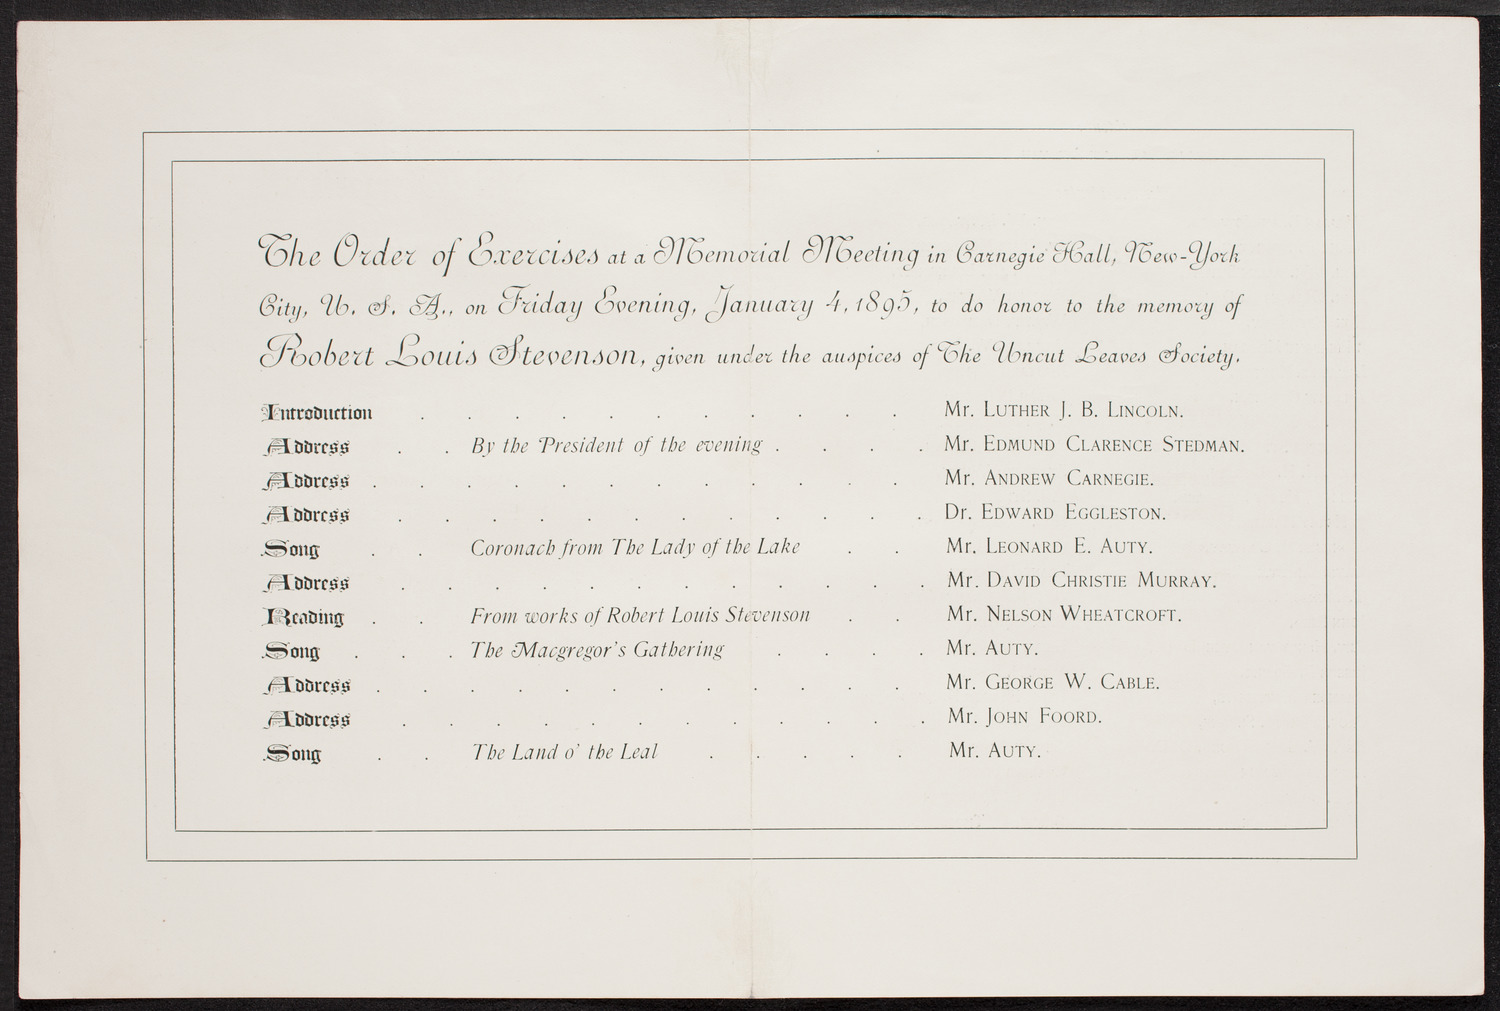 The Order of Exercises at a Memorial Meeting in Carnegie Hall, New-York
City, U. S. A., on Friday Evening, January 4, 1895, to do honor to the memory of
Robert Louis Stevenson, given under the auspices of The Uncut Leaves Society.
Introduction . . . . . . . . . . . Mr. LUTHER J. B. LINCOLN.
Address . . By the President of the evening . . . . Mr. EDMUND CLARENCE STEDMAN.
Address . . . . . . . . . . . . Mr. ANDREW CARNEGIE.
Address . . . . . . . . . . . . Dr. EDWARD EGGLESTON.
Song . . Coronach from The Lady of the Lake . . Mr. LEONARD E. AUTY.
Address . . . . . . . . . . . . Mr. DAVID CHRISTIE MURRAY.
Reading . . From works of Robert Louis Stevenson . . Mr. NELSON WHEATCROFT.
Song . . . The Macgregor's Gathering . . . . Mr. AUTY.
Address . . . . . . . . . . . . Mr. GEORGE W. CABLE.
Address . . . . . . . . . . . . Mr. JOHN FOORD.
Song . . The Land o' the Leal . . . . . Mr. AUTY.